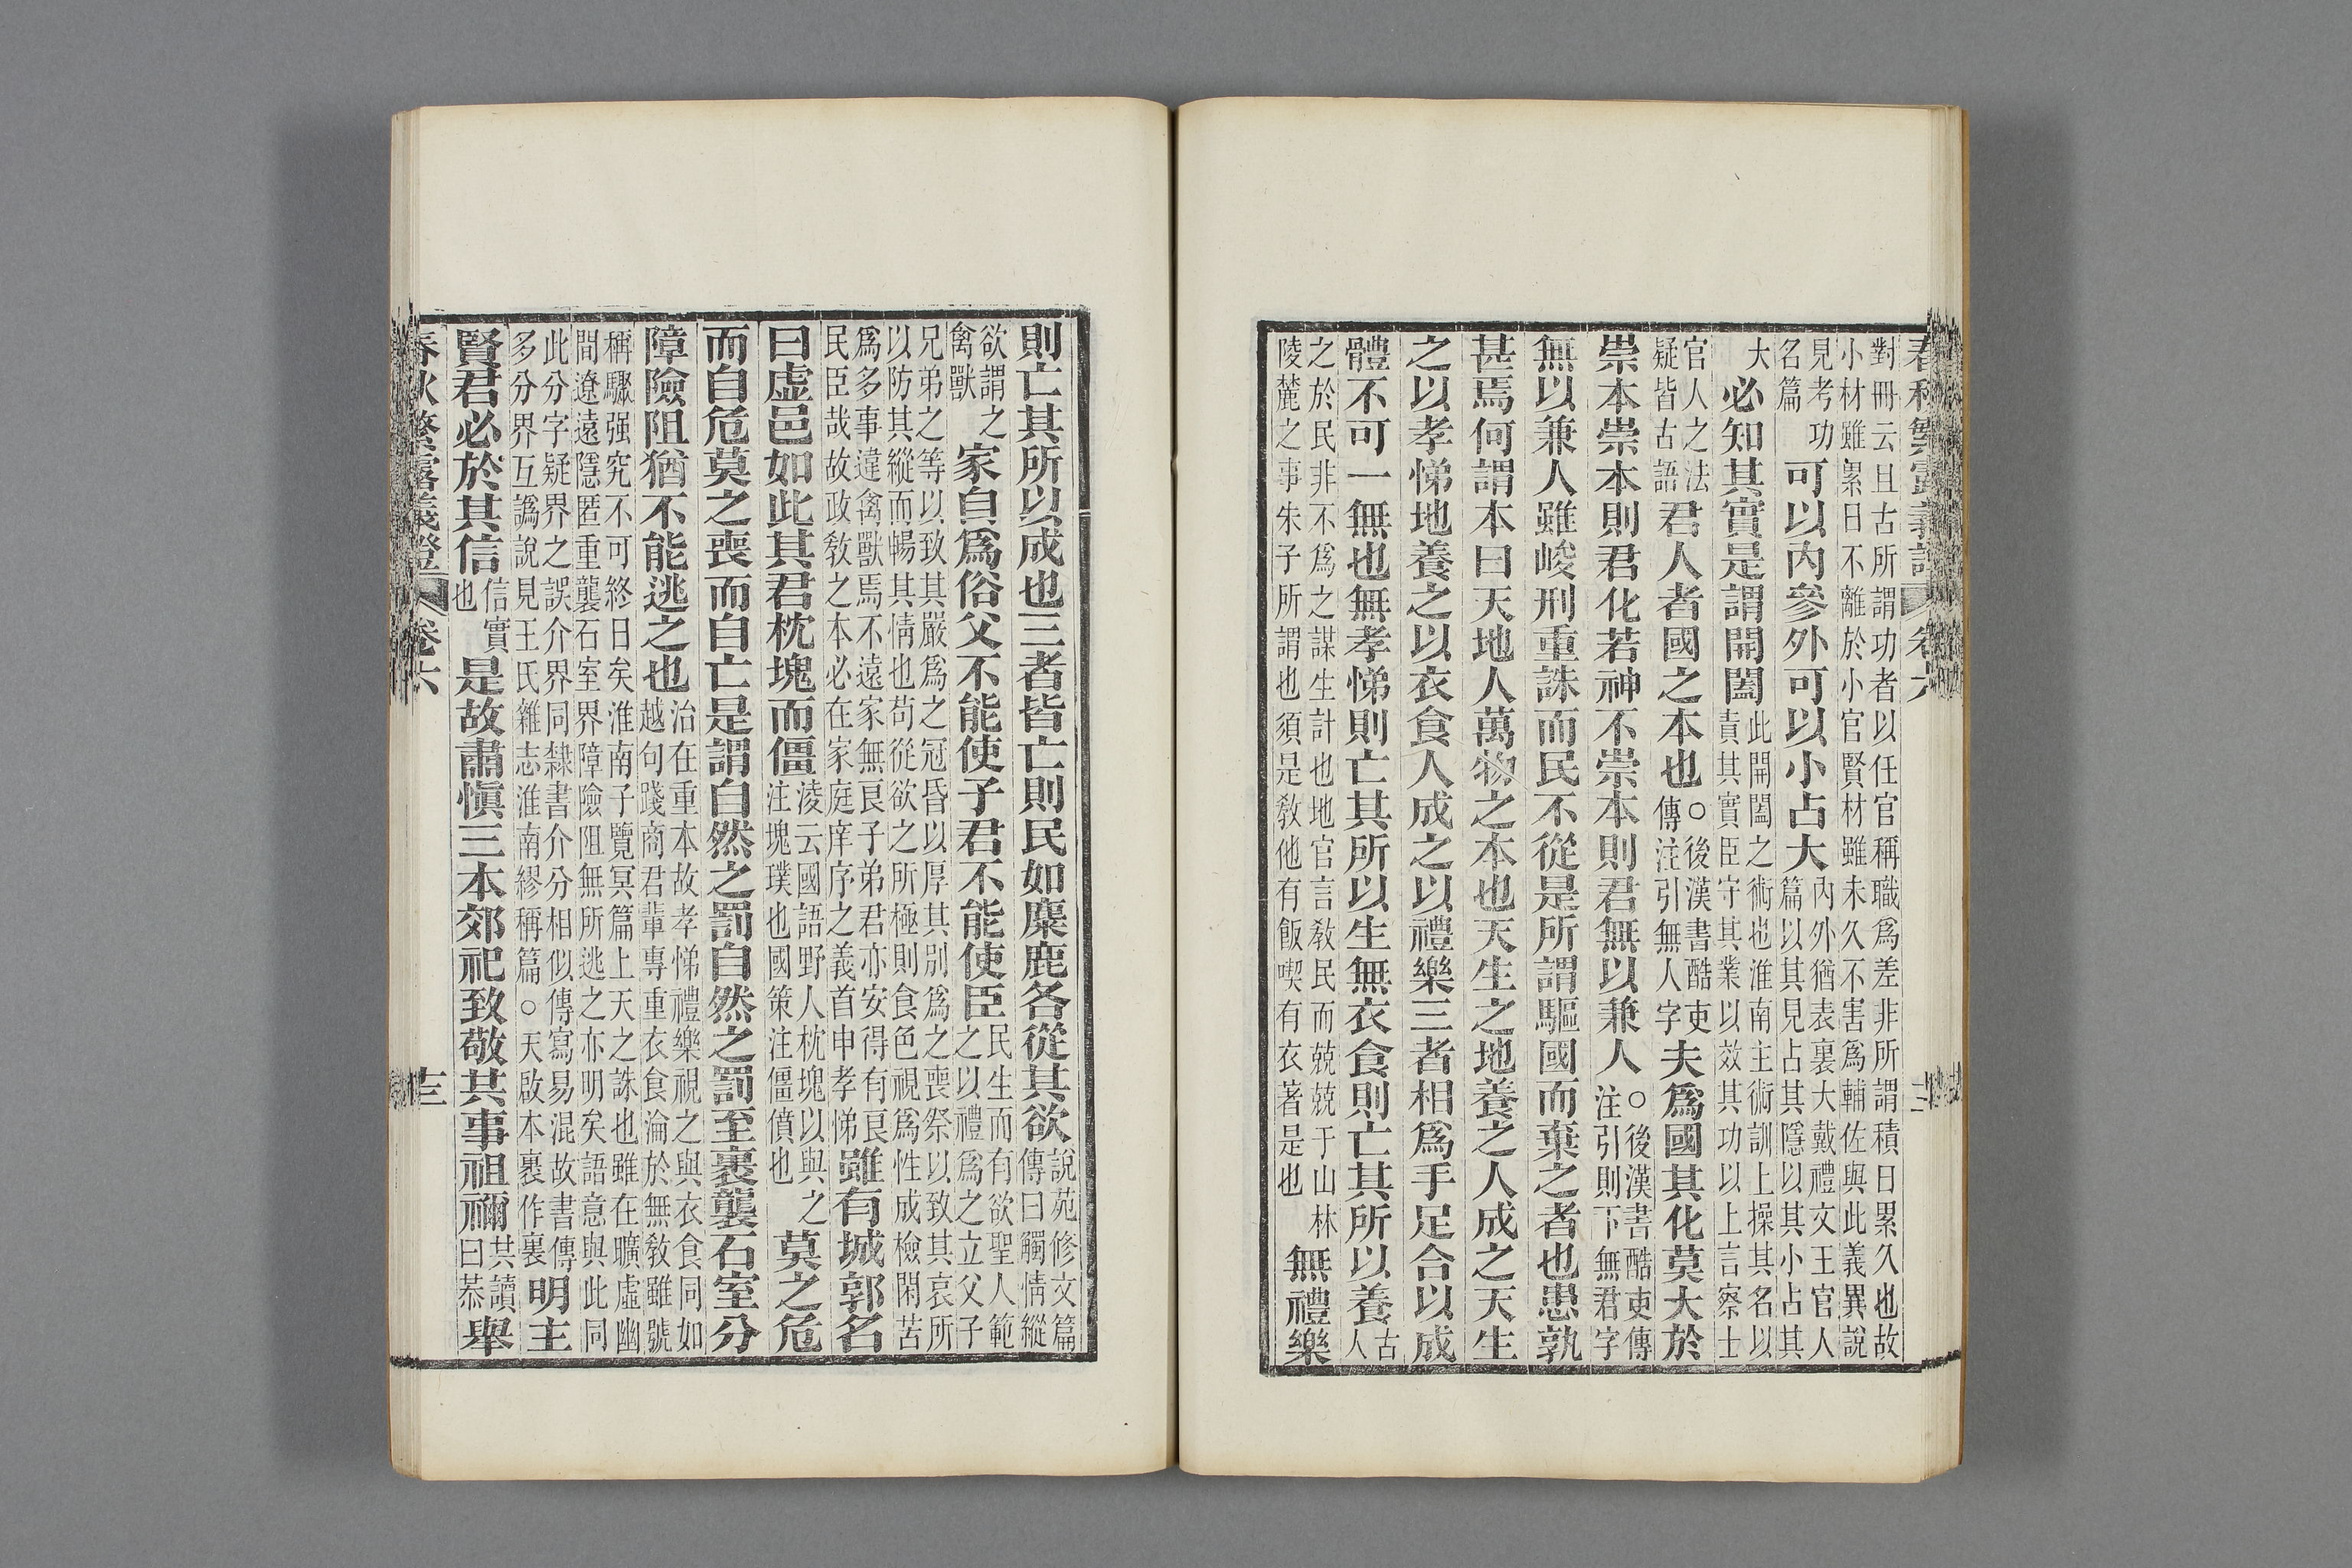 春秋繁露義證 卷六 十二
對冊云且古所謂功者以任官稱職爲差非所謂積日累久也故
小材雖累日不離於小官賢材雖未久不害爲輔佐與此義異說
見考功
名篇
可以內參外可以小占大
內外猶表裏大戴禮文王官人
篇以其見占其隱以其小占其
大
必知其實是謂開闔
此開闔之術也淮南主術訓上操其名以
責其實臣守其業以效其功以上言察士
官人之法
疑皆古語
君人者國之本也
○後漢書酷吏
傳注引無人字
夫爲國其化莫大於
崇本崇本則君化若神不崇本則君無以兼人
○後漢書酷吏傳
注引則下無君字
無以兼人雖峻刑重誅而民不從是所謂驅國而棄之者也患孰
甚焉何謂本曰天地人萬物之本也天生之地養之人成之天生
之以孝悌地養之以衣食人成之以禮樂三者相爲手足合以成
體不可一無也無孝悌則亡其所以生無衣食則亡其所以養
古
人
之於民非不爲之謀生計也地官言敎民而兢兢于山林
陵麓之事朱子所謂也須是敎他有飯喫有衣著是也
無禮樂
則亡其所以成也三者皆亡則民如麋鹿各從其欲
說苑修文篇
傳曰觸情縱
欲謂之
禽獸
家自爲俗父不能使子君不能使臣
民生而有欲聖人範
之以禮爲之立父子
兄弟之等以致其嚴爲之冠昏以厚其別爲之喪祭以致其哀所
以防其縱而暢其情也苟從欲之所極則食色視爲性成檢閑苦
爲多事違禽獸焉不遠家無良子弟君亦安得有良
民臣哉故政敎之本必在家庭庠序之義首申孝悌
雖有城郭名
曰虛邑如此其君枕塊而僵
淩云國語野人枕塊以與之
注塊璞也國策注僵僨也
莫之危
而自危莫之喪而自亡是謂自然之罰自然之罰至裹襲石室分
障險阻猶不能逃之也
治在重本故孝悌禮樂視之與衣食同如
越句踐商君輩專重衣食淪於無敎雖號
稱驟强究不可終日矣淮南子覽冥篇上天之誅也雖在曠虛幽
間遼遠隱匿重襲石室界障險阻無所逃之亦明矣語意與此同
此分字疑界之誤介界同隸書介分相似傳寫易混故書傳
多分界互譌說見王氏雜志淮南繆稱篇○天啟本裹作裏
明主
賢君必於其信
信實
也
是故肅愼三本郊祀致敬共事祖禰
共讀
曰恭
舉
春秋繁露義證 卷六 十三